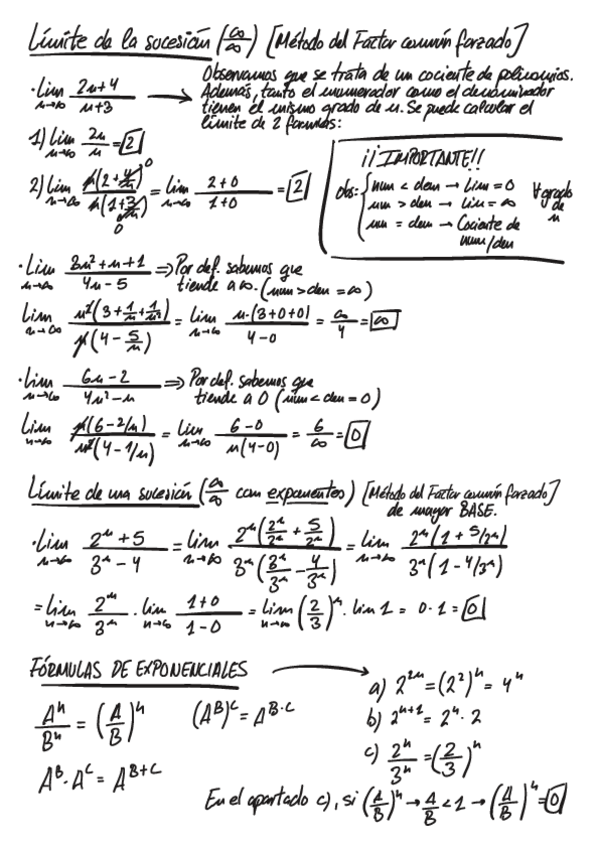 Límite de la sucesión (∞/∞) [Método del Factor común forzado]
· Lim n→∞ (2n+4)/(n+3) → Observamos que se trata de un cociente de polinomios.
Además, tanto el numerador como el denominador
tienen el mismo grado de n. Se puede calcular el
límite de 2 formas:
1) Lim n→∞ 2n/n = 2
2) Lim n→∞ n(2+4/n)/n(1+3/n) = Lim n→∞ (2+0)/(1+0) = 2
0
0
¡¡IMPORTANTE!!
Obs: { num < den → Lim = 0
num > den → Lim = ∞
num = den → Cociente de
num/den
∀ grado
de
n
· Lim n→∞ (3n²+n+1)/(4n-5) ⇒ Por def. sabemos que
tiende a ∞. (num > den = ∞)
Lim n→∞ n²(3+1/n+1/n²)/n(4-5/n) = Lim n→∞ n·(3+0+0)/(4-0) = ∞/4 = ∞
· Lim n→∞ (6n-2)/(4n²-n) ⇒ Por def. sabemos que
tiende a 0 (num < den = 0)
Lim n→∞ n(6-2/n)/n²(4-1/n) = Lim n→∞ (6-0)/n(4-0) = 6/∞ = 0
Límite de una sucesión (∞/∞ con exponentes) [Método del Factor común forzado]
de mayor BASE.
· Lim n→∞ (2ⁿ+5)/(3ⁿ-4) = Lim n→∞ 2ⁿ(2ⁿ/2ⁿ + 5/2ⁿ)/3ⁿ(3ⁿ/3ⁿ - 4/3ⁿ) = Lim n→∞ 2ⁿ(1+5/2ⁿ)/3ⁿ(1-4/3ⁿ)
= Lim n→∞ 2ⁿ/3ⁿ · Lim n→∞ (1+0)/(1-0) = Lim n→∞ (2/3)ⁿ · Lim 1 = 0·1 = 0
FÓRMULAS DE EXPONENCIALES →
Aⁿ/Bⁿ = (A/B)ⁿ (A^B)^C = A^(B·C)
A^B·A^C = A^(B+C)
a) 2^(2n) = (2²)ⁿ = 4ⁿ
b) 2^(n+1) = 2ⁿ·2
c) 2ⁿ/3ⁿ = (2/3)ⁿ
En el apartado c), si (A/B)ⁿ → A/B < 1 → (A/B)ⁿ = 0